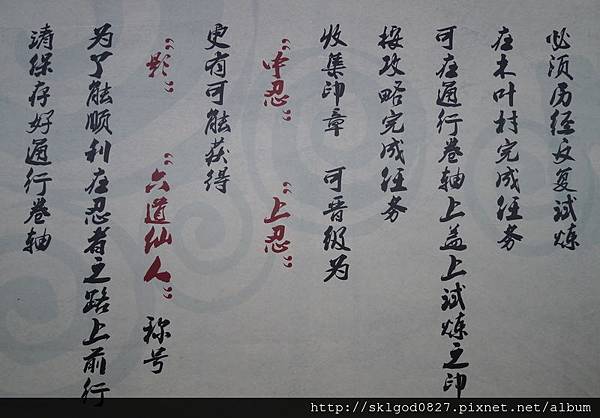 必须历经反复试炼
在木叶村完成任务
可在通行卷轴上盖上试炼之印
按攻略完成任务
收集印章 可晋级为
“中忍” “上忍”
更有可能获得
“影” “六道仙人” 称号
为了能顺利在忍者之路上前行
请保存好通行卷轴
http://sklgod0827.pixnet.net/album